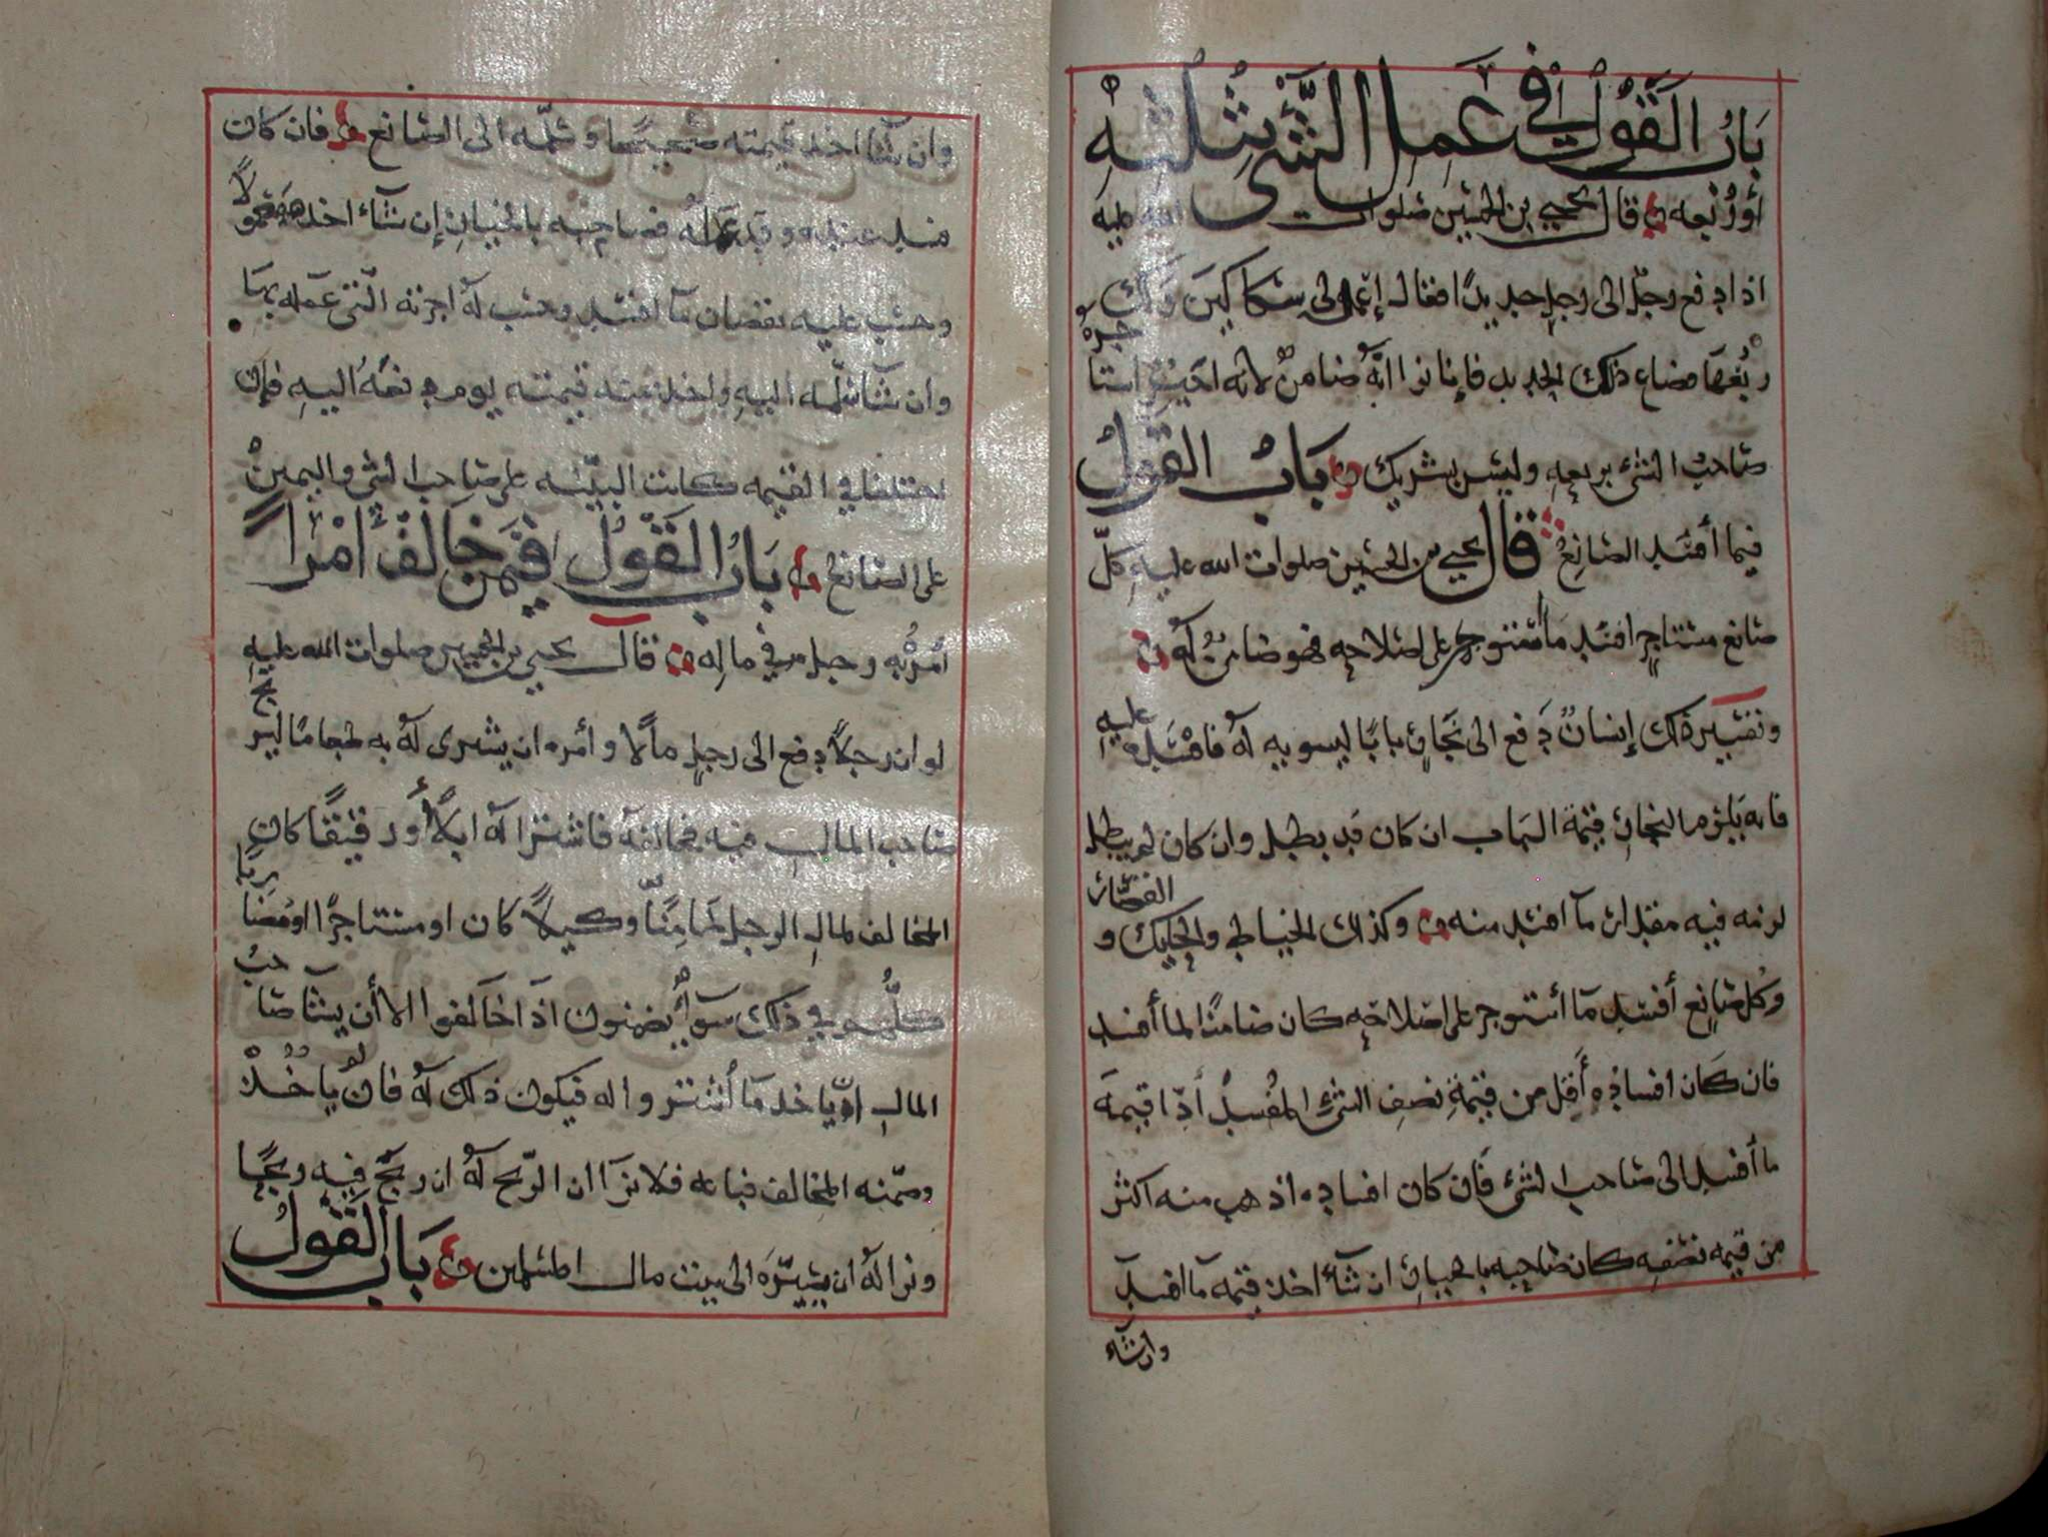 باب القول في عمل الشي بثلثه
أو ربعه قال يحيى بن الحسين صلوات الله عليه
اذا دفع رجل الى رجل حديدًا فقال إعمل لي سكاكين ولك
ربعها فضاع ذلك الحديد فإنا نرا انه ضامن لانه اجير استاجره
صاحب الشي بربعه وليس بشريك باب القول
فيما أفسد الصانع قال يحيى بن الحسين صلوات الله عليه كل
صانع مستاجر افسد ما استوجر على اصلاحه فهو ضامن له
وتفسير ذلك إنسان دفع الى نجار بابا ليسويه له فافسده عليه
فانه يلزم النجار قيمة الباب ان كان قد بطل وان كان لم يبطل
لزمه فيه مقدار ما افسد منه وكذلك الخياط والحايك و القصار
وكل صانع أفسد ما استوجر على اصلاحه كان ضامنا لما أفسد
فان كان افساده أقل من قيمة نصف الشي المفسد أدا قيمة
ما أفسد الى صاحب الشي فان كان افساده اذهب منه اكثر
من قيمه نصفه كان صاحبه بالخيار ان شآء اخذ قيمة ما افسد
وان شاء
وان شآ اخذ قيمته صحيحا وسلمه الى الصانع فان كان
فسد عنده وقد عمله فصاحبه بالخيار إن شآء اخذه معمولاً
وحسب عليه نقصان ما افسد وحسب له اجرته التي عمله بها
وان شآ سلمه اليه واخذ منه قيمته يوم دفعه اليه فإن
اختلفا في القيمه كانت البينه على صاحب الشي واليمين
على الصانع باب القول فيمن خالف امرًا
أمر به رجل في ماله قال يحيى بن الحسين صلوات الله عليه
لو ان رجلاً دفع الى رجل مالا وأمره ان يشرى له به طعاما ليربح
صاحب المال فيه فخالفه فاشترا له ابلاً أو رقيقًا كان
المخالف لمال الرجل ضامنًا وكيلاً كان او مستاجرًا او مضاربًا
كلهم في ذلك سوآ يضمنون اذا خالفوا الا أن يشا صاحب
المال ان ياخذ ما اشتروا له فيكون ذلك له فان لم ياخذ
وضمنه المخالف فباعه فلا نرا ان الربح له ان ربح فيه ربحًا
ونرا له ان يسيره الى بيت مال المسلمين باب القول